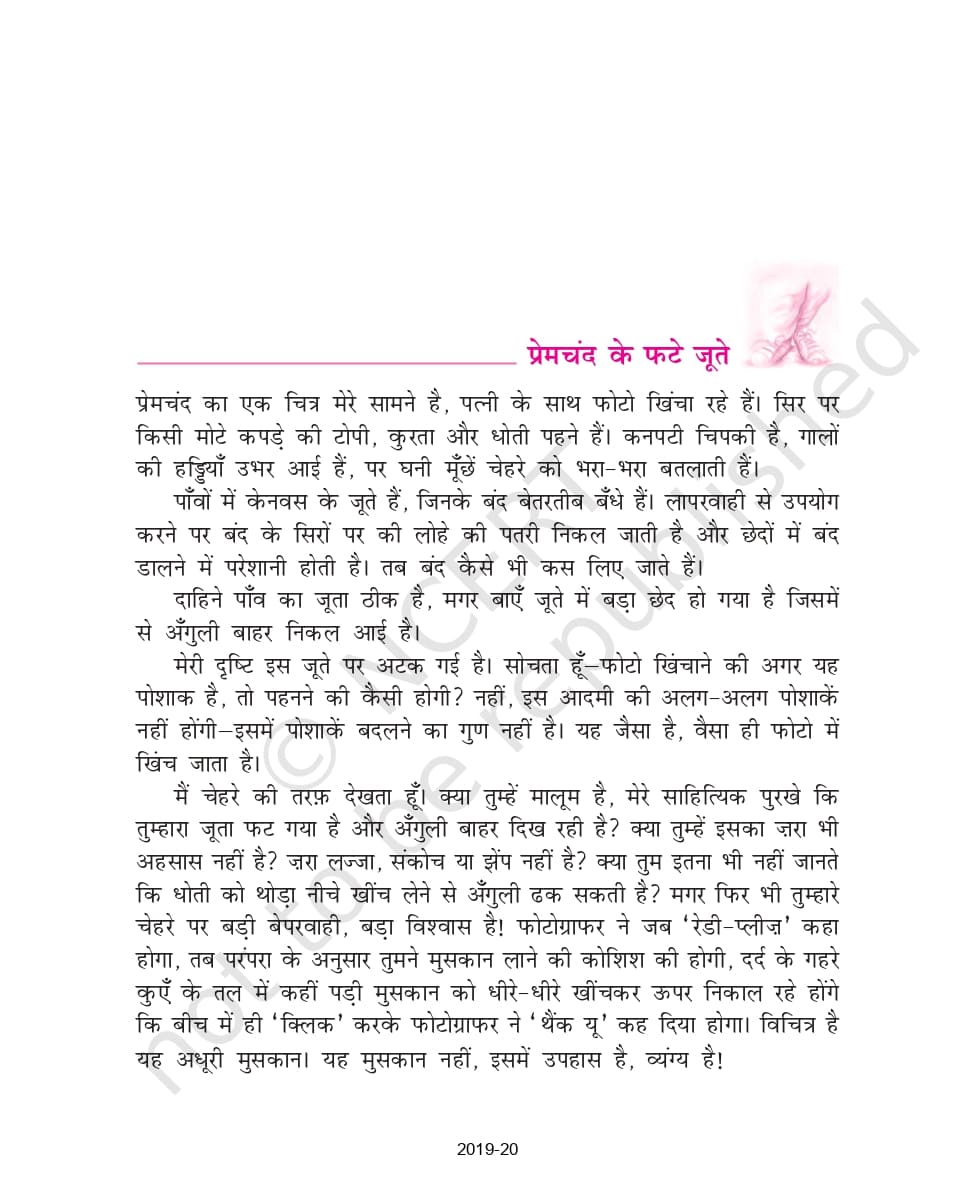 प्रेमचंद के फटे जूते
प्रेमचंद का एक चित्र मेरे सामने है, पत्नी के साथ फोटो खिंचा रहे हैं। सिर पर
किसी मोटे कपड़े की टोपी, कुरता और धोती पहने हैं। कनपटी चिपकी है, गालों
की हड्डियाँ उभर आई हैं, पर घनी मूँछें चेहरे को भरा-भरा बतलाती हैं।
पाँवों में केनवस के जूते हैं, जिनके बंद बेतरतीब बँधे हैं। लापरवाही से उपयोग
करने पर बंद के सिरों पर की लोहे की पतरी निकल जाती है और छेदों में बंद
डालने में परेशानी होती है। तब बंद कैसे भी कस लिए जाते हैं।
दाहिने पाँव का जूता ठीक है, मगर बाएँ जूते में बड़ा छेद हो गया है जिसमें
से अँगुली बाहर निकल आई है।
मेरी दृष्टि इस जूते पर अटक गई है। सोचता हूँ—फोटो खिंचाने की अगर यह
पोशाक है, तो पहनने की कैसी होगी? नहीं, इस आदमी की अलग-अलग पोशाकें
नहीं होंगी—इसमें पोशाकें बदलने का गुण नहीं है। यह जैसा है, वैसा ही फोटो में
खिंच जाता है।
मैं चेहरे की तरफ़ देखता हूँ। क्या तुम्हें मालूम है, मेरे साहित्यिक पुरखे कि
तुम्हारा जूता फट गया है और अँगुली बाहर दिख रही है? क्या तुम्हें इसका ज़रा भी
अहसास नहीं है? ज़रा लज्जा, संकोच या झेंप नहीं है? क्या तुम इतना भी नहीं जानते
कि धोती को थोड़ा नीचे खींच लेने से अँगुली ढक सकती है? मगर फिर भी तुम्हारे
चेहरे पर बड़ी बेपरवाही, बड़ा विश्वास है! फोटोग्राफर ने जब ‘रेडी-प्लीज़’ कहा
होगा, तब परंपरा के अनुसार तुमने मुसकान लाने की कोशिश की होगी, दर्द के गहरे
कुएँ के तल में कहीं पड़ी मुसकान को धीरे-धीरे खींचकर ऊपर निकाल रहे होंगे
कि बीच में ही ‘क्लिक’ करके फोटोग्राफर ने ‘थैंक यू’ कह दिया होगा। विचित्र है
यह अधूरी मुसकान। यह मुसकान नहीं, इसमें उपहास है, व्यंग्य है!
© NCERT
not to be republished
2019-20